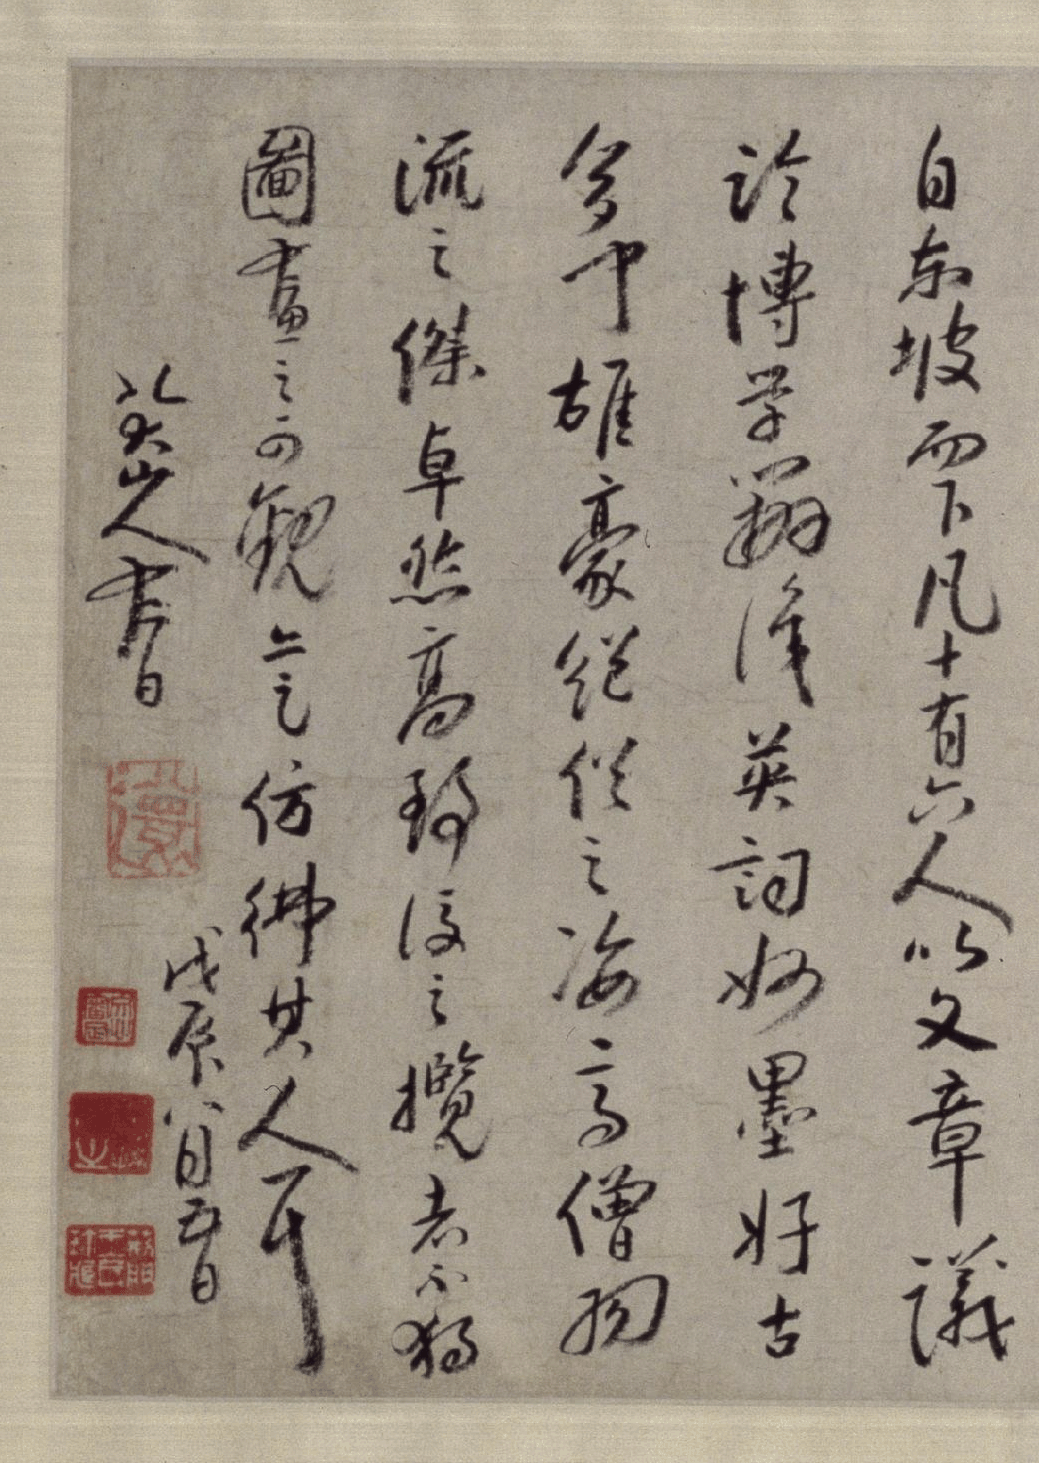 自東坡而下凡十有六人以文章議
論博學辨識英詞妙墨好古
多聞雄豪絕俗之姿高僧羽
流之傑卓然高致後之攬者不獨
圖畫之可觀亦足仿佛其人耳
八大山人書
戊辰八月五日